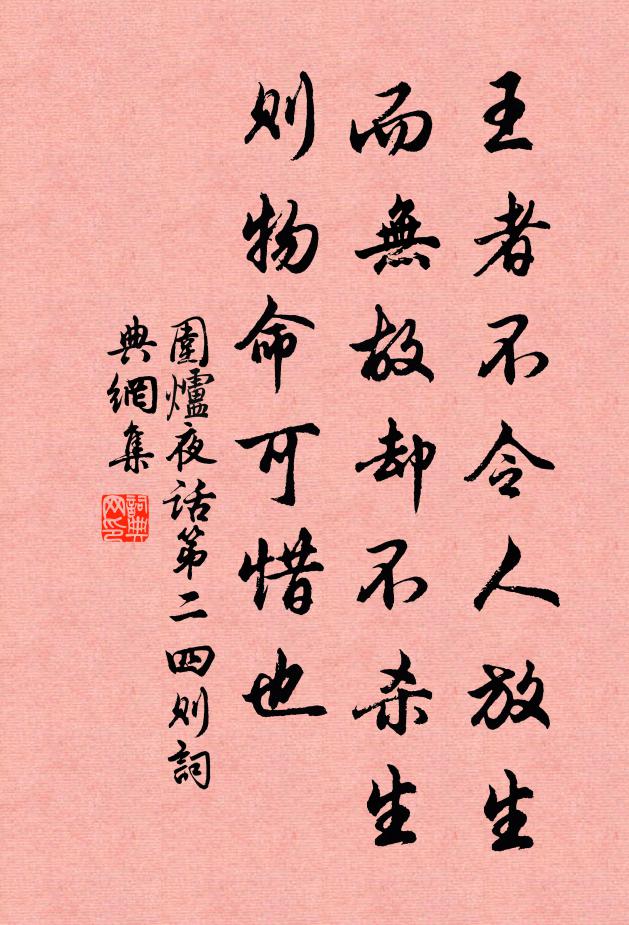 王者不令人放生
而無故却不杀生
则物命可惜也
圍爐夜话第二四则詞
典網集
詞典网印